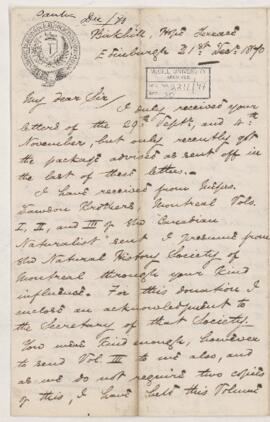 Birkhill, Hope Terrace
Edinburgh 21st Decr. 1870
McGILL UNIVERSITY
ARCHIVES
My dear Sir
I duly received your
letters of the 29th Septr. and 4th
November, but only recently got
the package advised as sent off in
the last of these letters.
I have received from Messrs.
Dawson Brothers Montreal Vols.
I, II, and III of the Canadian
Naturalist sent I presume from
the Natural History Society of
Montreal through your kind
influence. For this donation I
enclose an acknowledgment to
the Secretary of that Society.
You were kind enough, however
to send Vol. III to me also, and
as we do not require two copies
of this, I have held this Volume